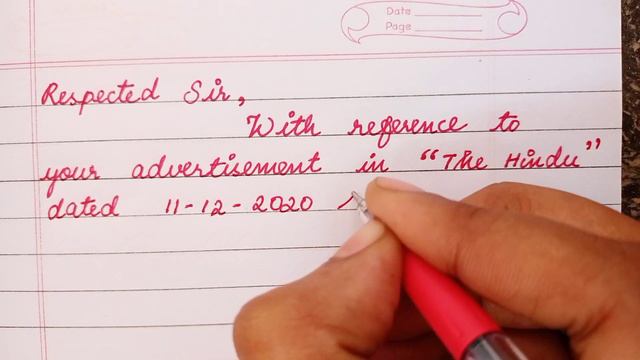 Date
Page
Respected Sir,
With reference to
your advertisement in "The Hindu"
dated 11-12-2020